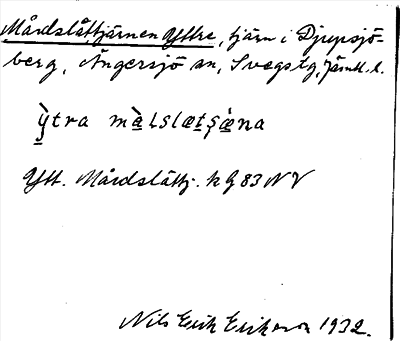 Mårdslåttjärnen Yttre, tjärn i Djupsjö-
berg, Ängersjö sn, Svegs tg, Jämtl. l.
ỳtra màlslætşæ̀na
Ytt. Mårdslåttj. k G 83 NV
Nils Erik Erikson 1932.